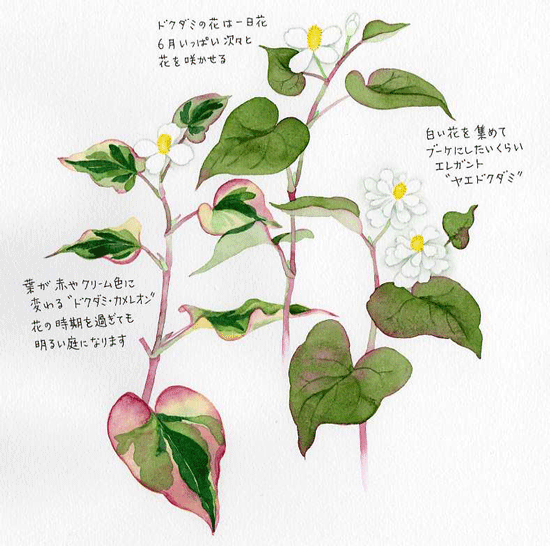 ドクダミの花は一日花
6月いっぱい次々と
花を咲かせる
白い花を集めて
ブーケにしたいくらい
エレガント
"ヤエドクダミ"
葉が赤やクリーム色に
変わる"ドクダミ・カメレオン"
花の時期を過ぎても
明るい庭になります